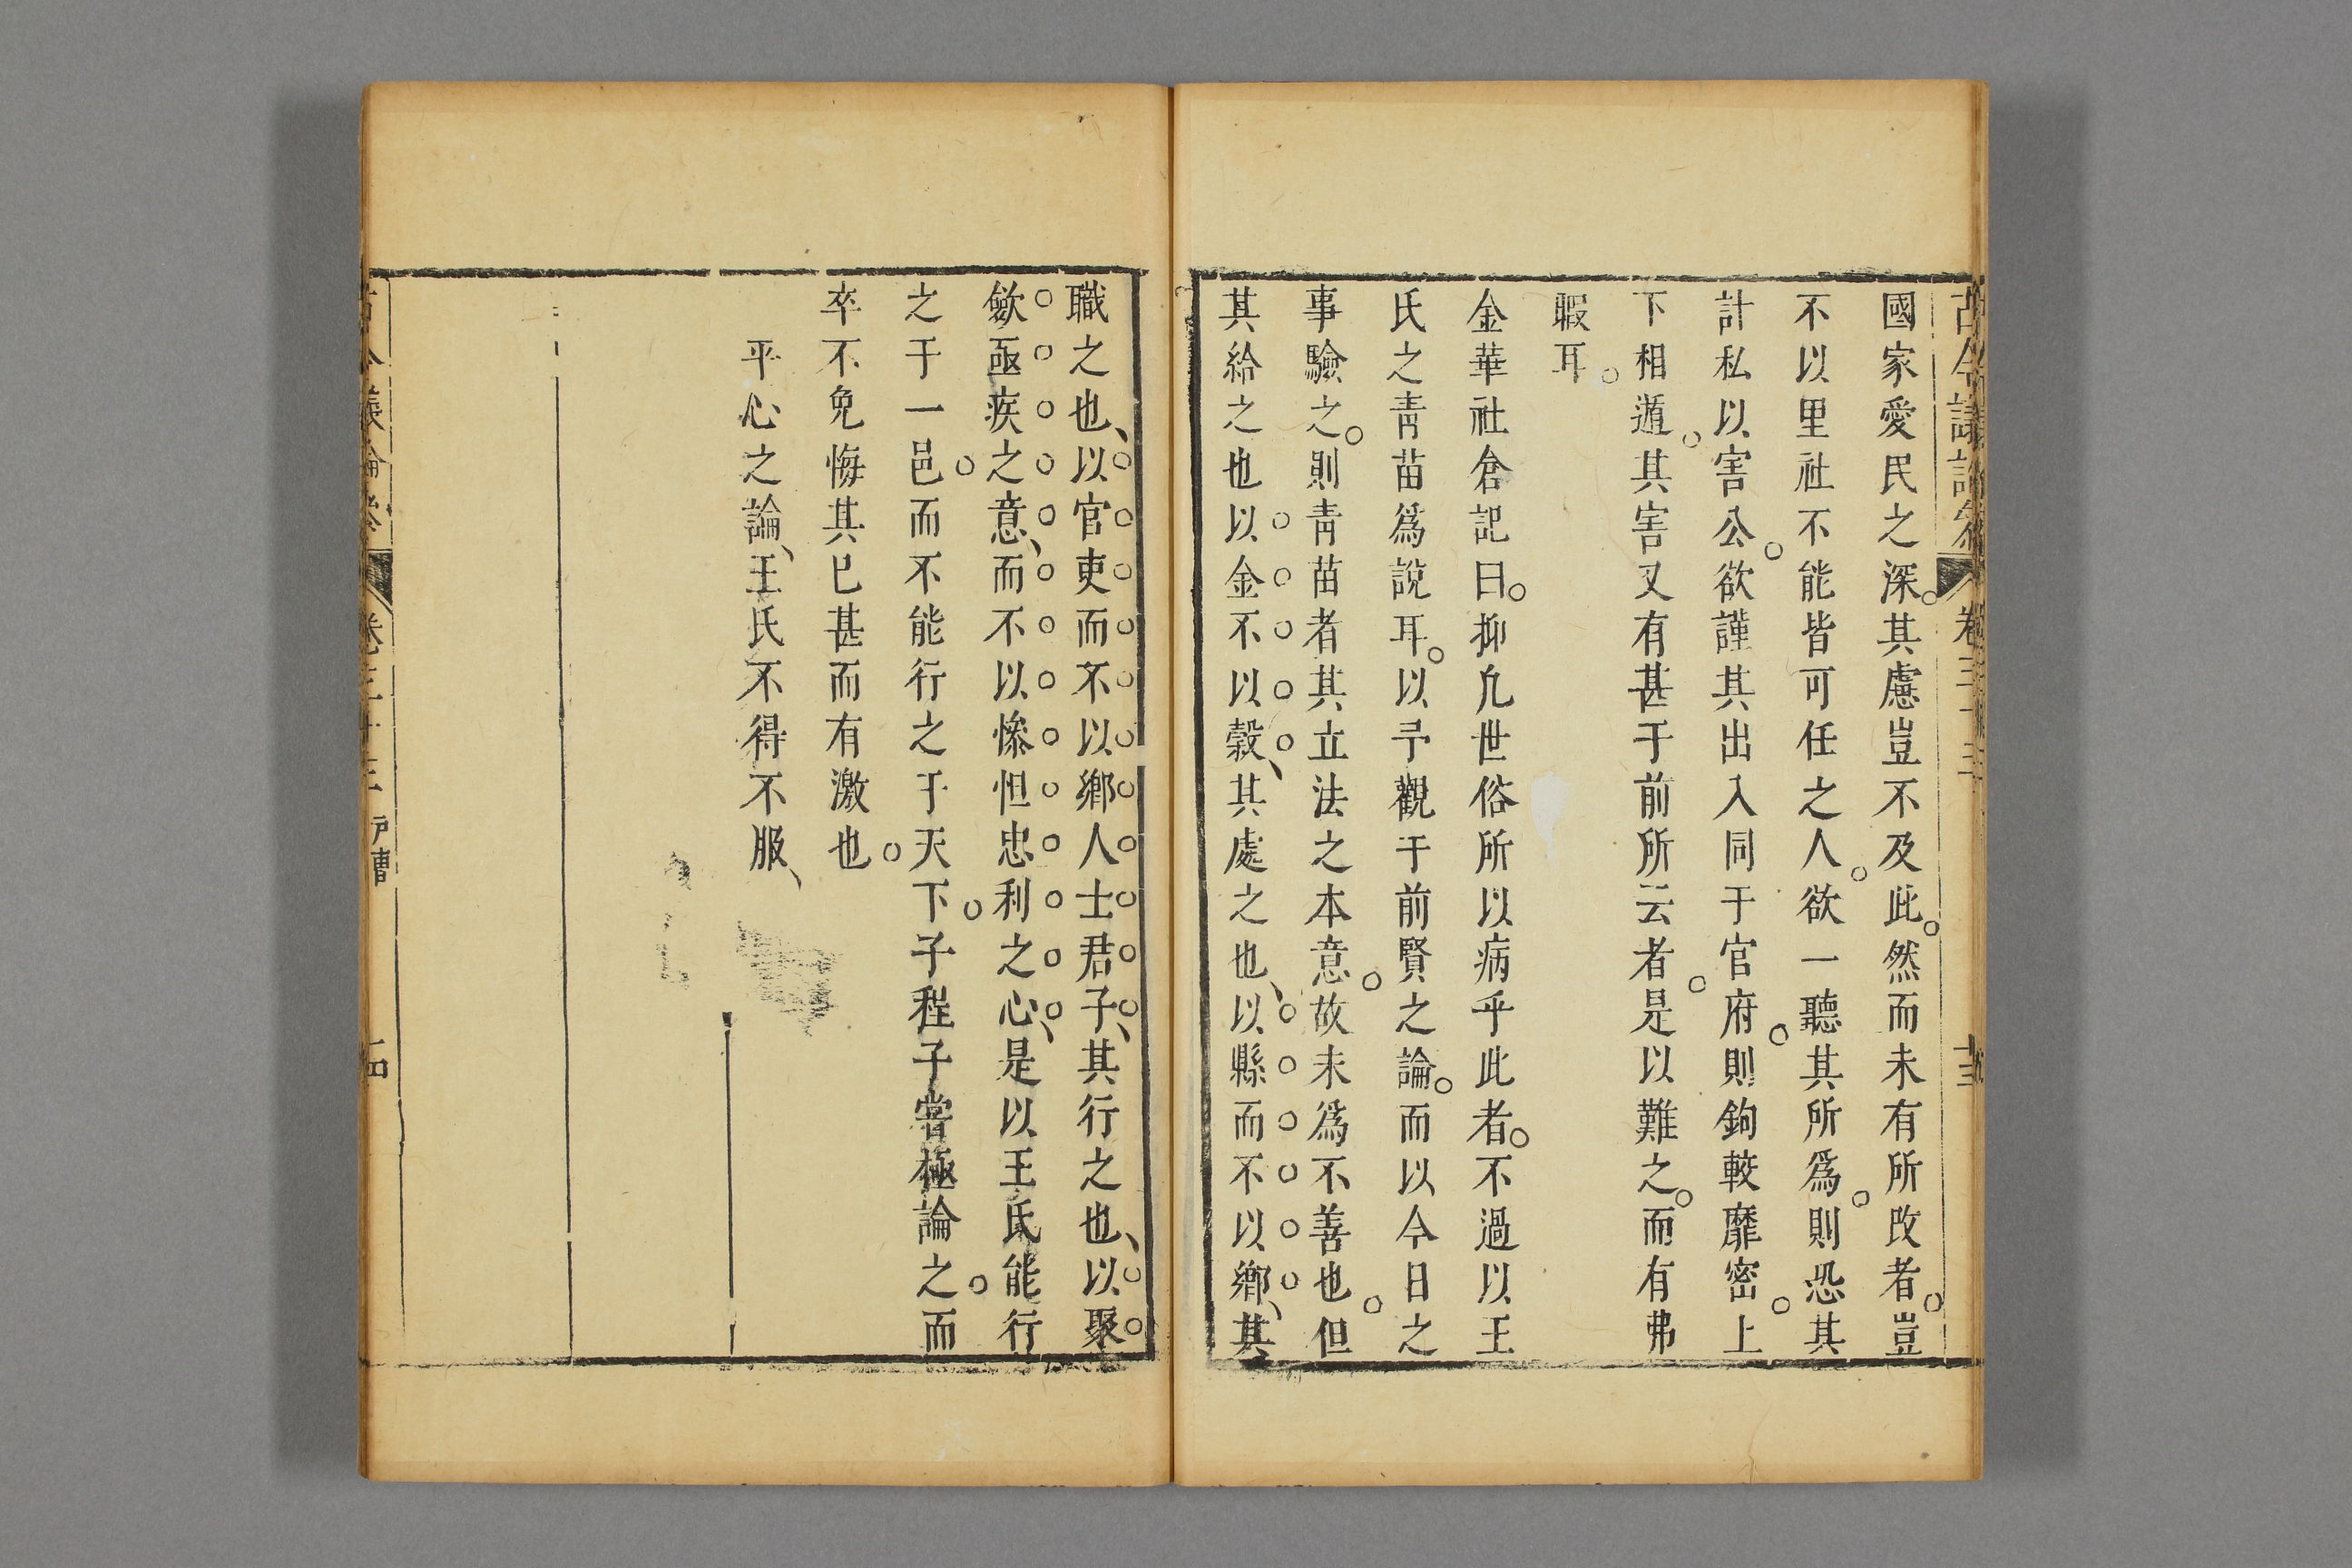 國家愛民之深。其慮豈不及此。然而未有所改者。豈
不以里社不能皆可任之人。欲一聽其所爲。則恐其
計私以害公。欲謹其出入同于官府。則鉤較靡密。上
下相遁。其害又有甚于前所云者。是以難之。而有弗
暇耳。
金華社倉記曰。抑凡世俗所以病乎此者。不過以王
氏之靑苗爲說耳。以予觀于前賢之論。而以今日之
事驗之。則靑苗者其立法之本意。故未爲不善也。但
其給之也以金不以穀、其處之也、以縣而不以鄉、其
職之也、以官吏而不以鄉人士君子、其行之也、以聚
歛亟疾之意、而不以慘怛忠利之心、是以王氏能行
之于一邑。而不能行之于天下。子程子嘗極論之。而
卒不免悔其已甚而有激也。
平心之論、王氏不得不服、
卷三十三 戶曹